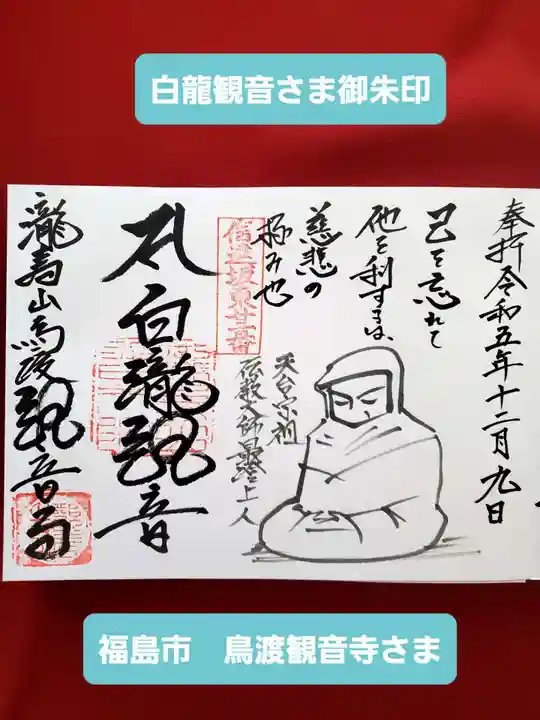 白龍観音さま御朱印
奉拝 令和五年十二月九日
己を忘れて
他を利するは、
慈悲の
極み也
天台宗祖
伝教大師最澄上人
信達坂東廿一番
白瀧観音
瀧寿山鳥渡観音寺
福島市 鳥渡観音寺さま